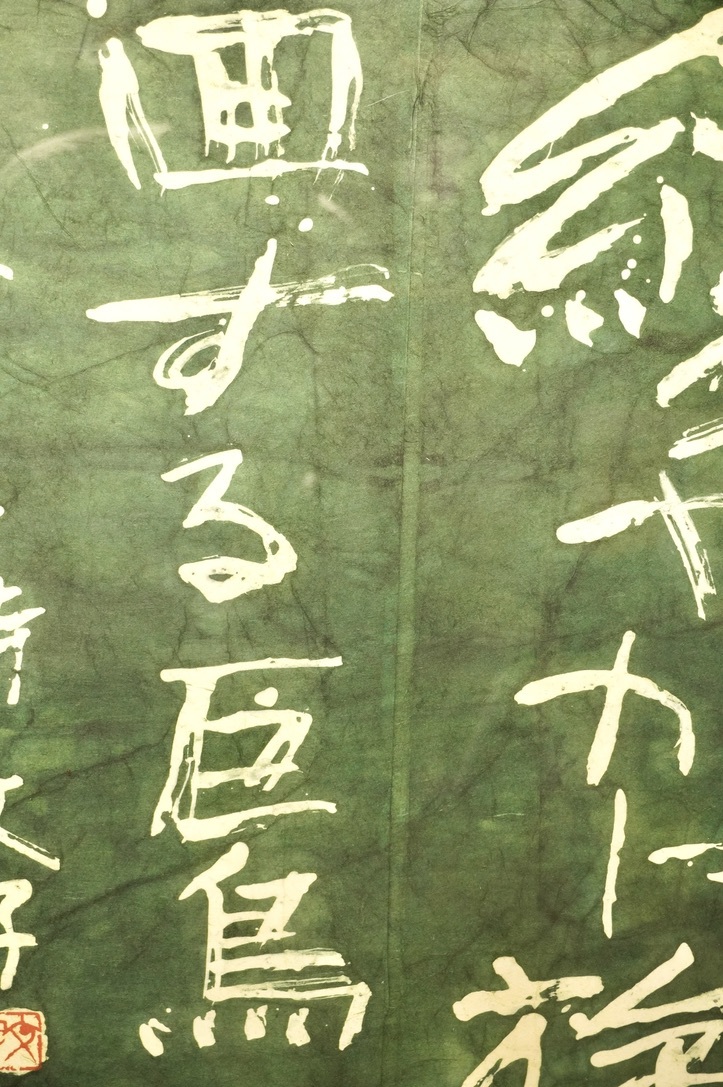 緩やかに旋
回する巨鳥